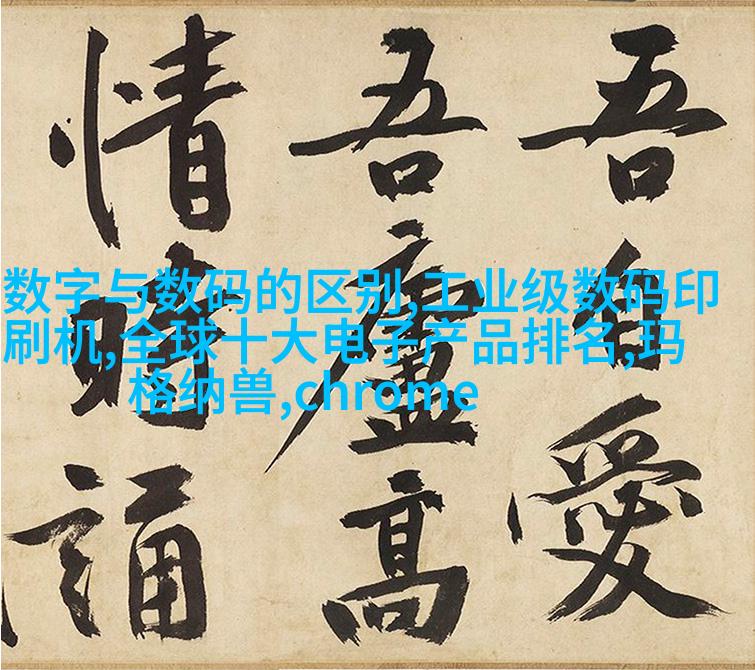 吾自愛
吾廬高
情時誦
数字与数码的区别,工业级数码印
刷机,全球十大电子产品排名,玛
格纳兽,chrome